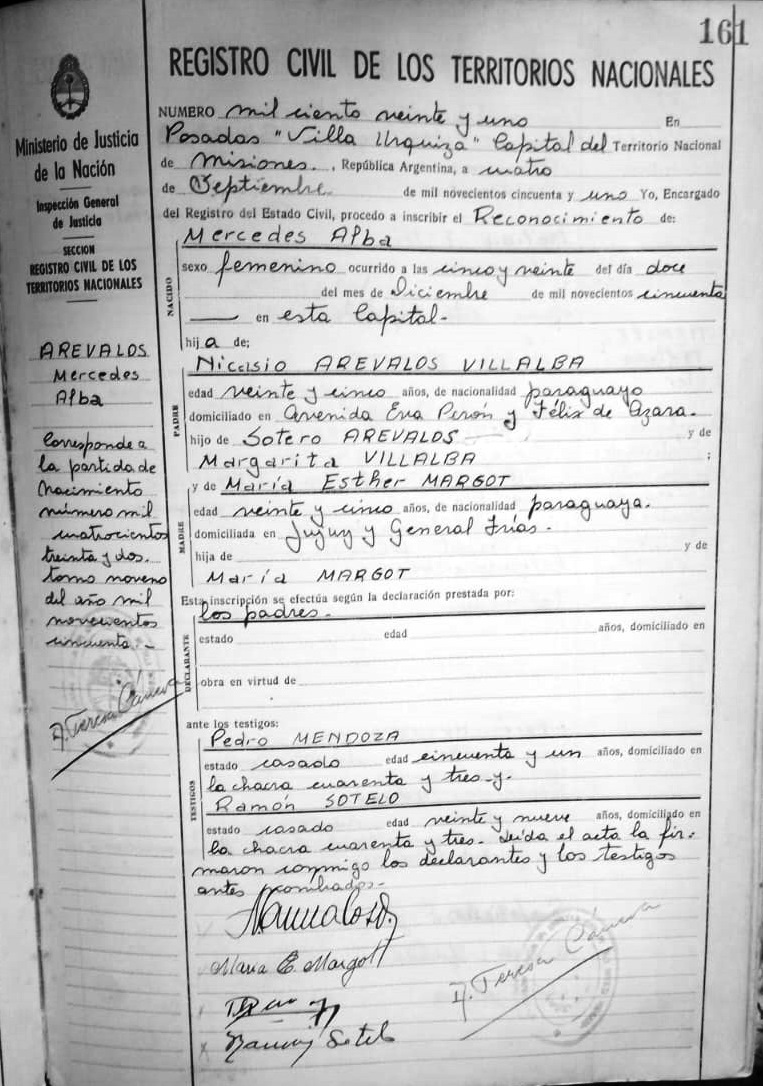 161
REGISTRO CIVIL DE LOS TERRITORIOS NACIONALES
Ministerio de Justicia
de la Nación
Inspección General
de Justicia
SECCION
REGISTRO CIVIL DE LOS
TERRITORIOS NACIONALES
AREVALOS
Mercedes
Alba
Corresponde a
la partida de
nacimiento
número mil
cuatrocientos
treinta y dos.
tomo noveno
del año mil
novecientos
cincuenta.-
A. Teresa Cánova
NUMERO mil ciento veinte y uno En
Posadas "Villa Urquiza" Capital del Territorio Nacional
de Misiones. , República Argentina, a cuatro
de Septiembre de mil novecientos cincuenta y uno Yo, Encargado
del Registro del Estado Civil, procedo a inscribir el Reconocimiento de:
NACIDO
Mercedes Alba
sexo femenino ocurrido a las cinco y veinte del día doce
del mes de Diciembre de mil novecientos cincuenta
en esta Capital.-
hija de:
PADRE
Nicasio AREVALOS VILLALBA
edad veinte y cinco años, de nacionalidad paraguayo
domiciliado en Avenida Eva Perón y Félix de Azara.
hijo de Sotero AREVALOS y de
Margarita VILLALBA ;
MADRE
y de María Esther MARGOT
edad veinte y cinco años, de nacionalidad paraguaya.
domiciliada en Jujuy y General Frías.
hija de y de
María MARGOT
Esta inscripción se efectúa según la declaración prestada por:
DECLARANTE
los padres.
estado edad años, domiciliado en
obra en virtud de
ante los testigos:
TESTIGOS
Pedro MENDOZA
estado casado edad cincuenta y un años, domiciliado en
la chacra cuarenta y tres-y-
Ramón SOTELO
estado casado edad veinte y nueve años, domiciliado en
la chacra cuarenta y tres. Leída el acta la fir-
maron conmigo los declarantes y los testigos
antes nombrados.-
Maria E. Margot
A. Teresa Cánova
Ramon Sotelo